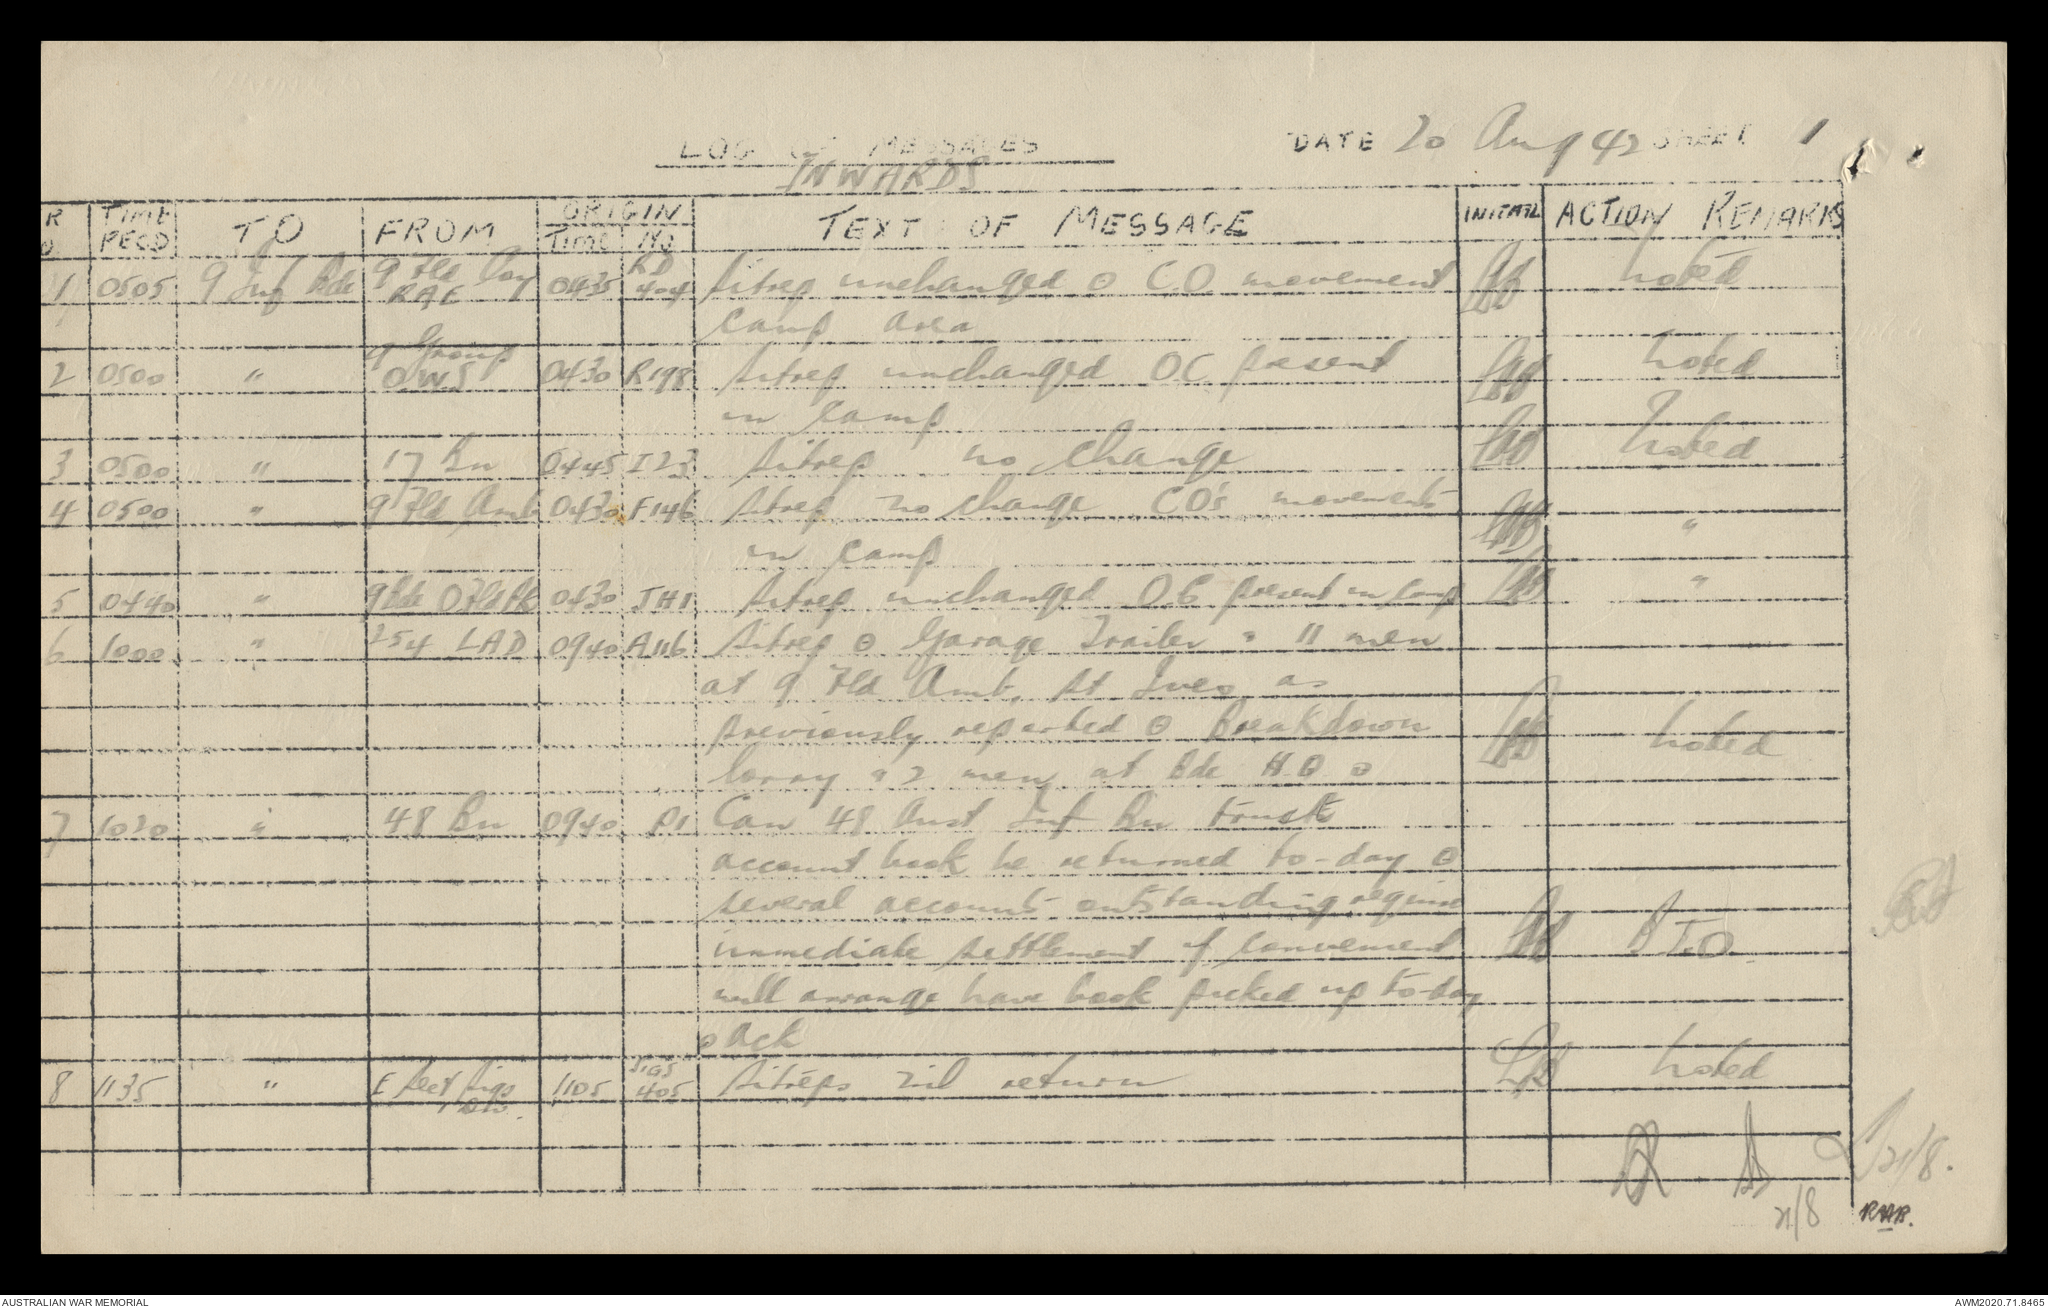 LOG OF MESSAGES
INWARDS
DATE 20 Aug 42 SHEET 1
R TIME RECD TO FROM ORIGIN TIME NO TEXT OF MESSAGE INITIAL ACTION REMARKS
1 0505 9 Inf Bde 9 Fld Coy RAE 0435 RD 404 Sitrep unchanged ⊙ C.O. movement noted
camp area
2 0500 " 9 Group OWS 0430 R198 Sitrep unchanged OC present noted
in camp
3 0500 " 17 Bn 0445 I23 Sitrep no change noted
4 0500 " 9 Fld Amb 0430 F146 Sitrep no change CO's movements "
in camp
5 0440 " 9 Bde O Fld Pk 0430 JH1 Sitrep unchanged O.C present in camp "
6 1000 " 254 LAD 0940 A116 Sitrep ⊙ Garage Trailer & 11 men
at 9 Fld Amb, St Ives as
previously reported ⊙ Breakdown noted
lorry & 2 men at Bde HQ ⊙
7 1020 " 48 Bn 0940 P1 Can 48 Aust Inf Bn trust
account book be returned to-day ⊙
several accounts outstanding require
immediate settlement if convenient
will arrange have book picked up to-day
ack
8 1135 " E Sect Sigs 1105 SIGS 405 Sitreps nil return noted
21/8.
21/8
RWB.
AUSTRALIAN WAR MEMORIAL
AWM2020.71.8465